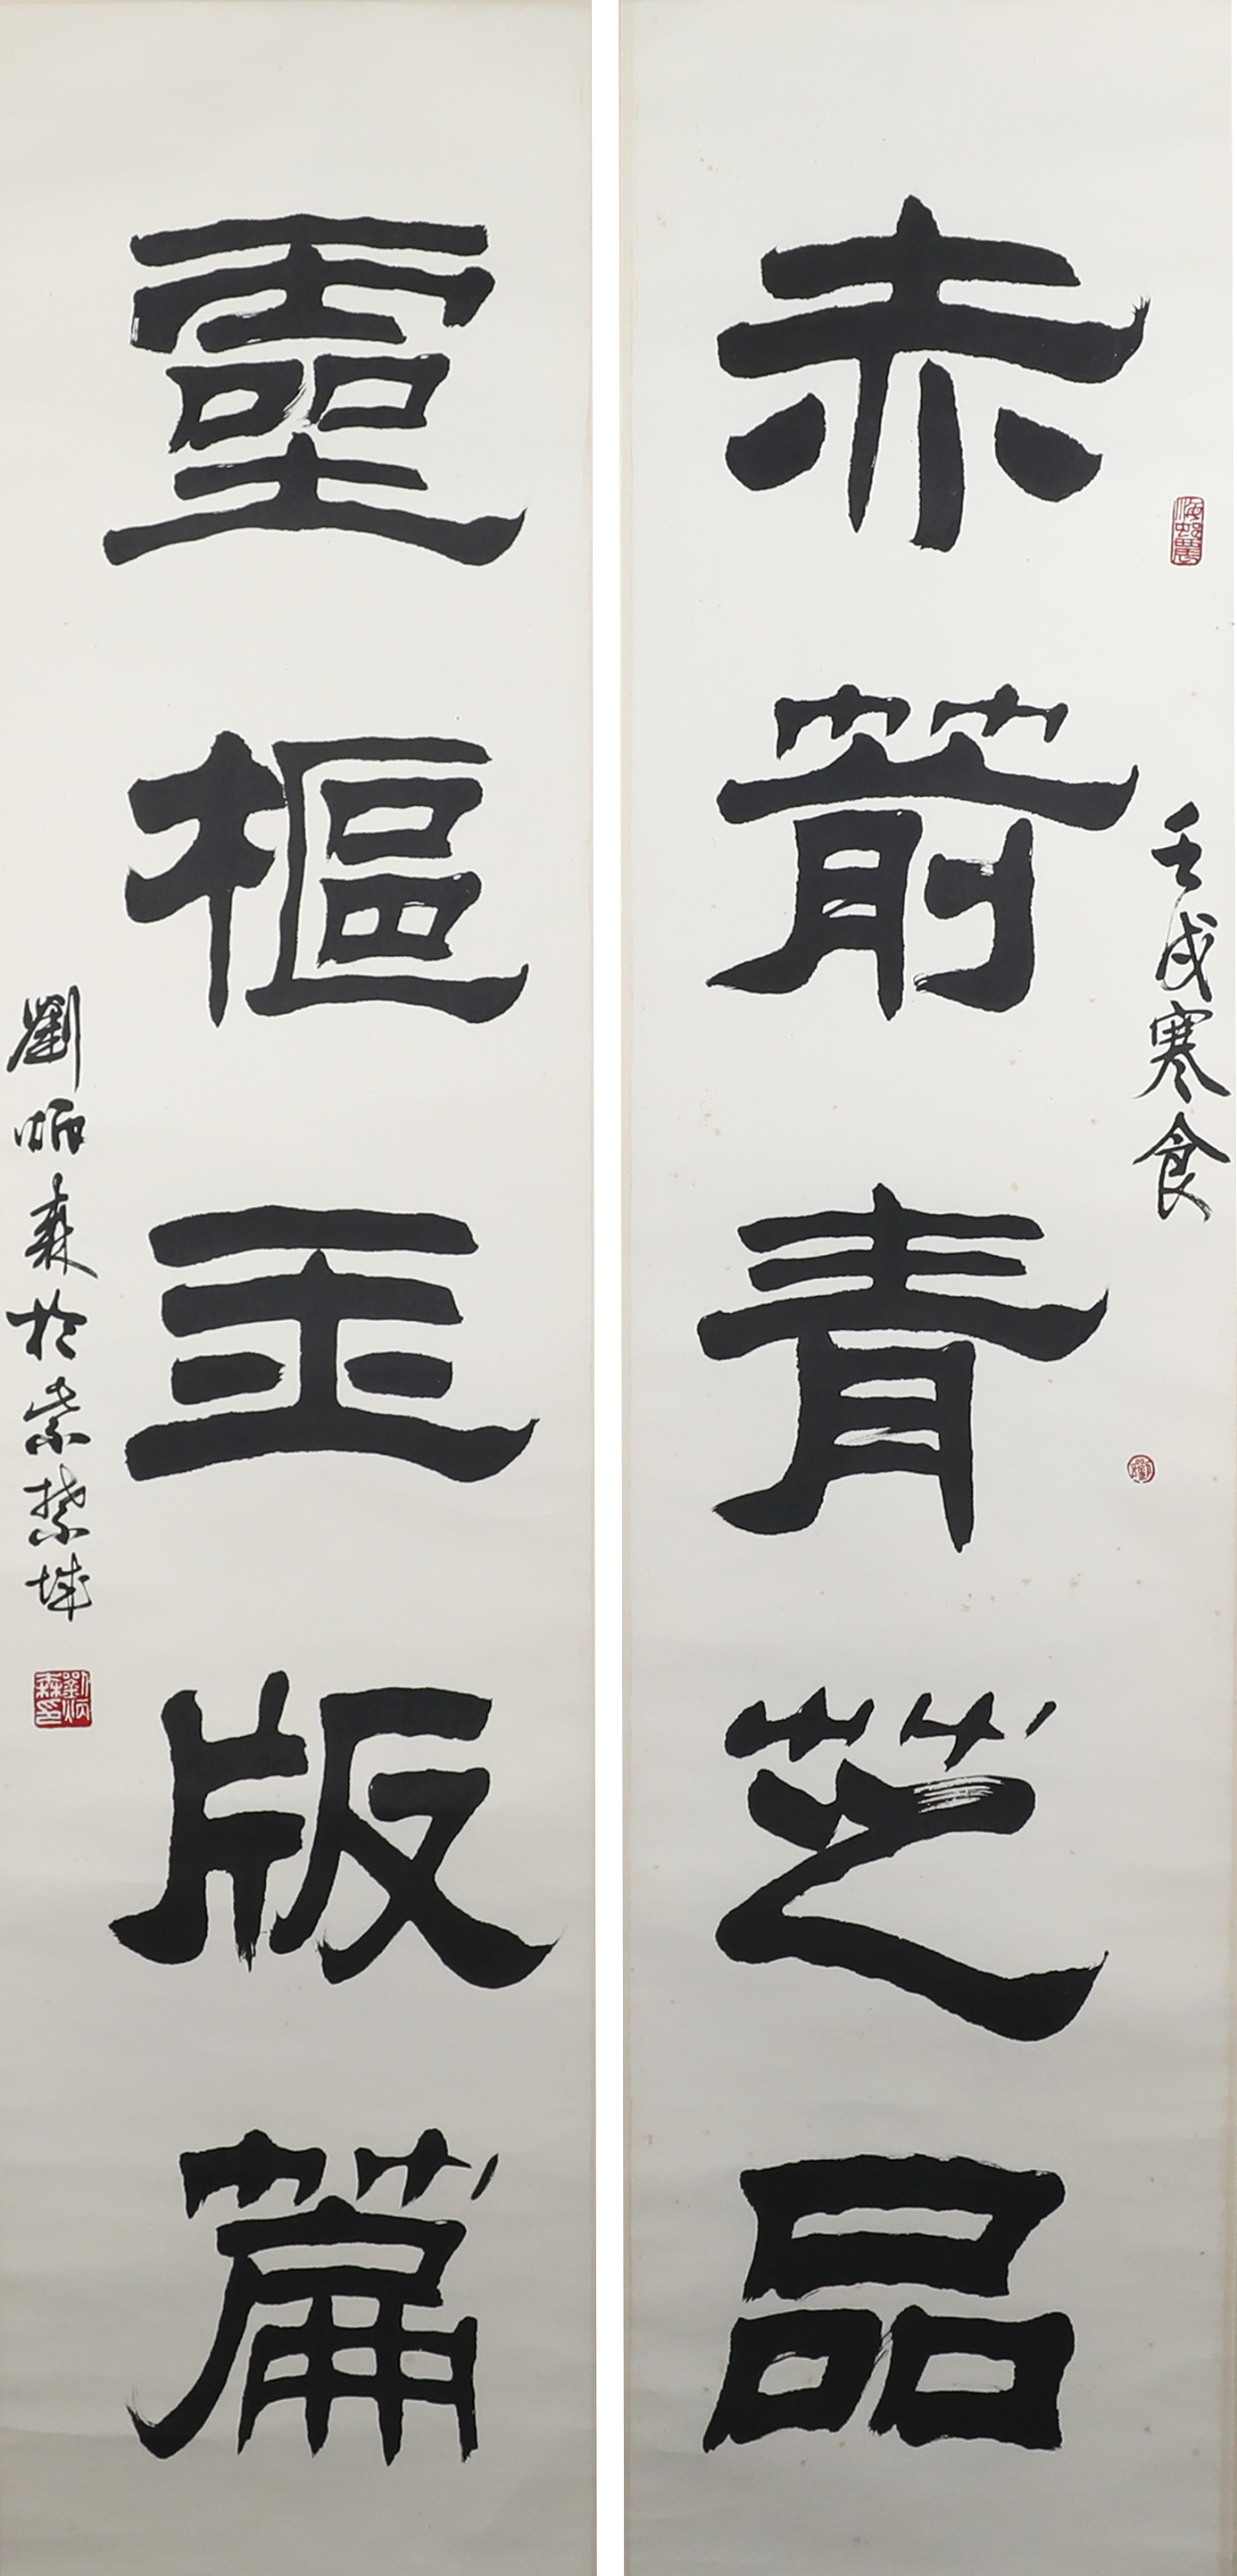 壬戌寒食
赤箭青芝品
靈樞玉版篇
劉炳森於紫禁城
劉炳森印